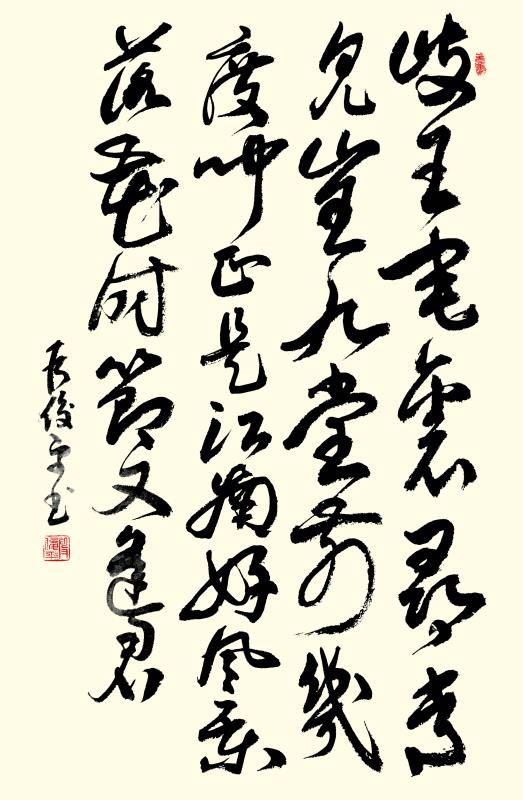 岐王宅裏尋常
見崔九堂前幾
度聞正是江南好風景
落花時節又逢君
俊平书